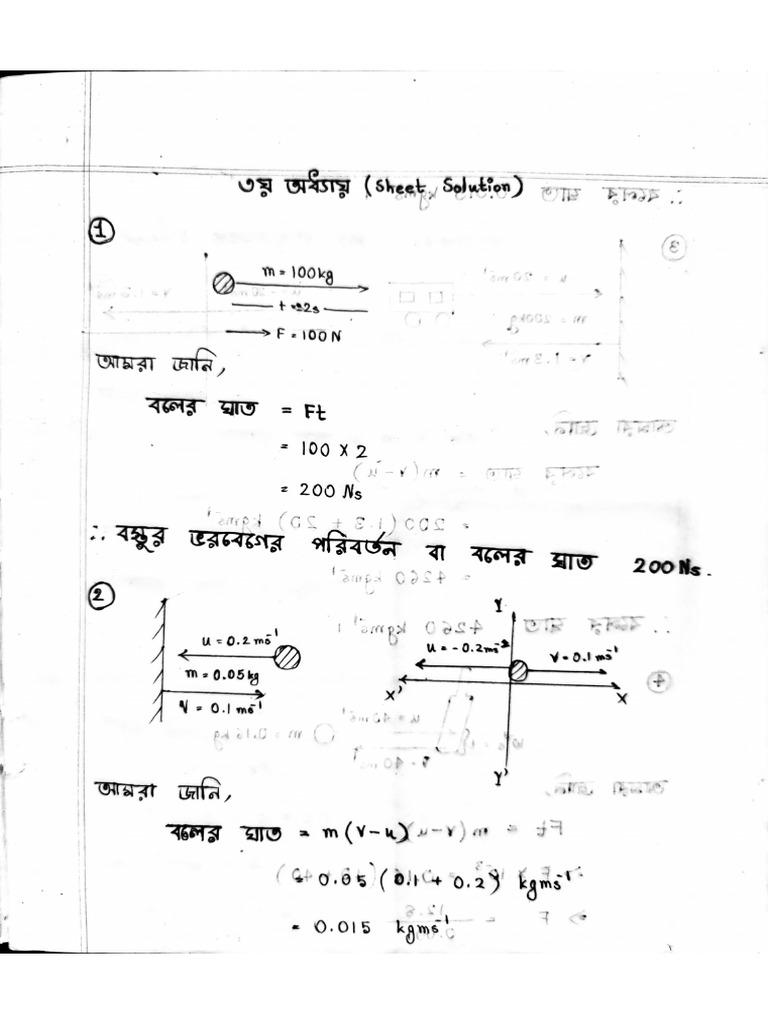 ৩য় অধ্যায় (Sheet Solution)
1
m = 100kg
t = 2s
F = 100 N
আমরা জানি,
বলের ঘাত = Ft
= 100 × 2
= 200 Ns
∴ বস্তুর ভরবেগের পরিবর্তন বা বলের ঘাত 200 Ns.
2
u = 0.2 ms⁻¹
m = 0.05 kg
V = 0.1 ms⁻¹
Y
u = -0.2 ms⁻²
V = 0.1 ms⁻¹
X'
X
Y'
আমরা জানি,
বলের ঘাত = m (v-u)
= 0.05 (0.1 + 0.2) kgms⁻¹
= 0.015 kgms⁻¹